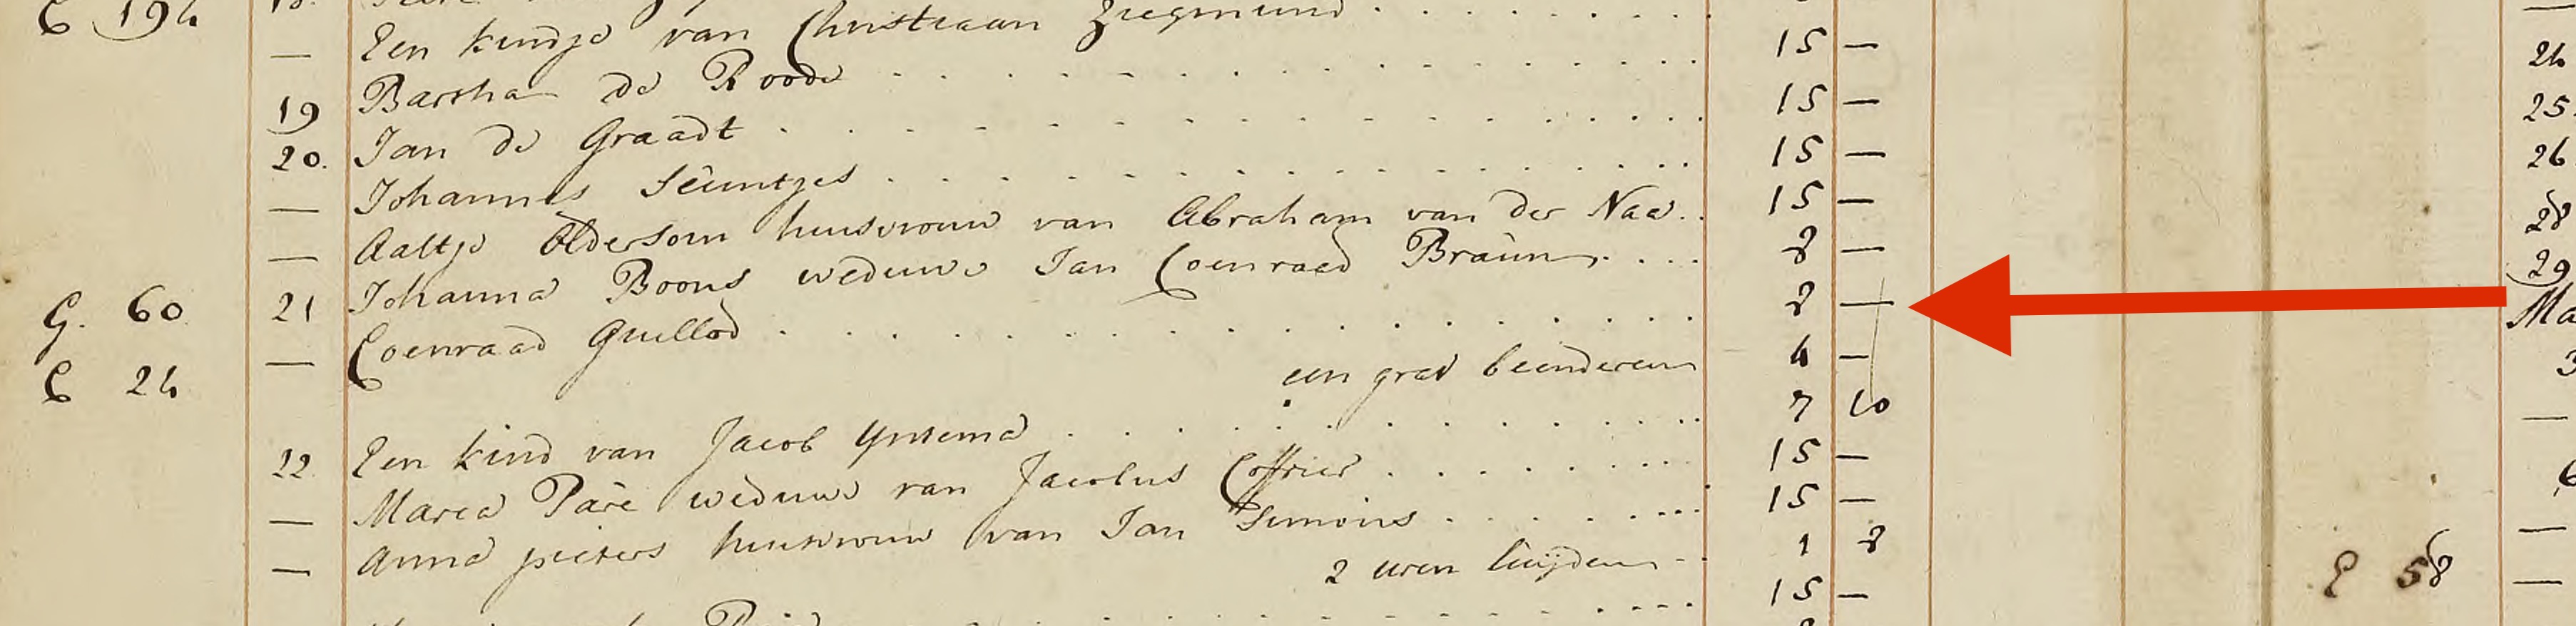 C 194 18.
— Een kindje van Christiaan Ziegmund 15 —
19 Bartha de Roode 15 —
20. Jan de Graadt 15 —
— Johannes Seuntjes 15 —
— Aaltje Oldersom huisvrouw van Abraham van der Naa. 8 —
G. 60 21 Johanna Boons weduwe Jan Coenraad Braun 8 —
C 24 — Coenraad Guillod
een graf beenderen 4 —
22 Een kind van Jacob Yntema 7 10
— Maria Paré weduwe van Jacobus 15 —
— Anna pieters huisvrouw van Jan Simons 15 —
2 uren luijden 1 8
15 —
24
25.
26
28
29
Ma
3
6
E 58